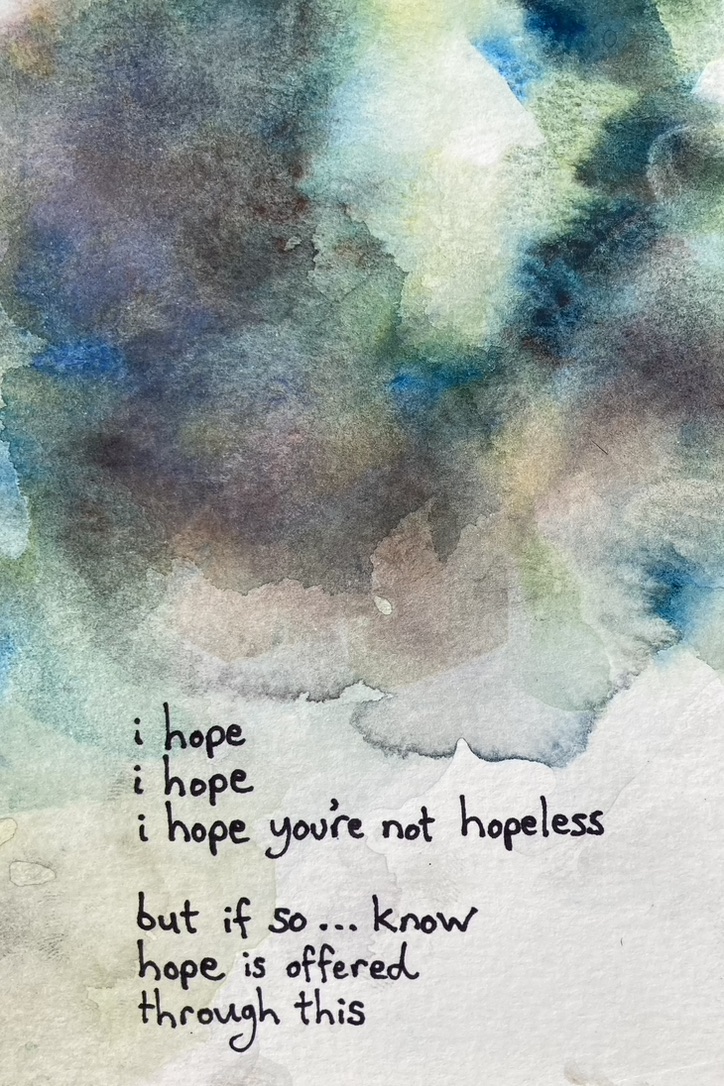 i hope
i hope
i hope you're not hopeless
but if so... know
hope is offered
through this